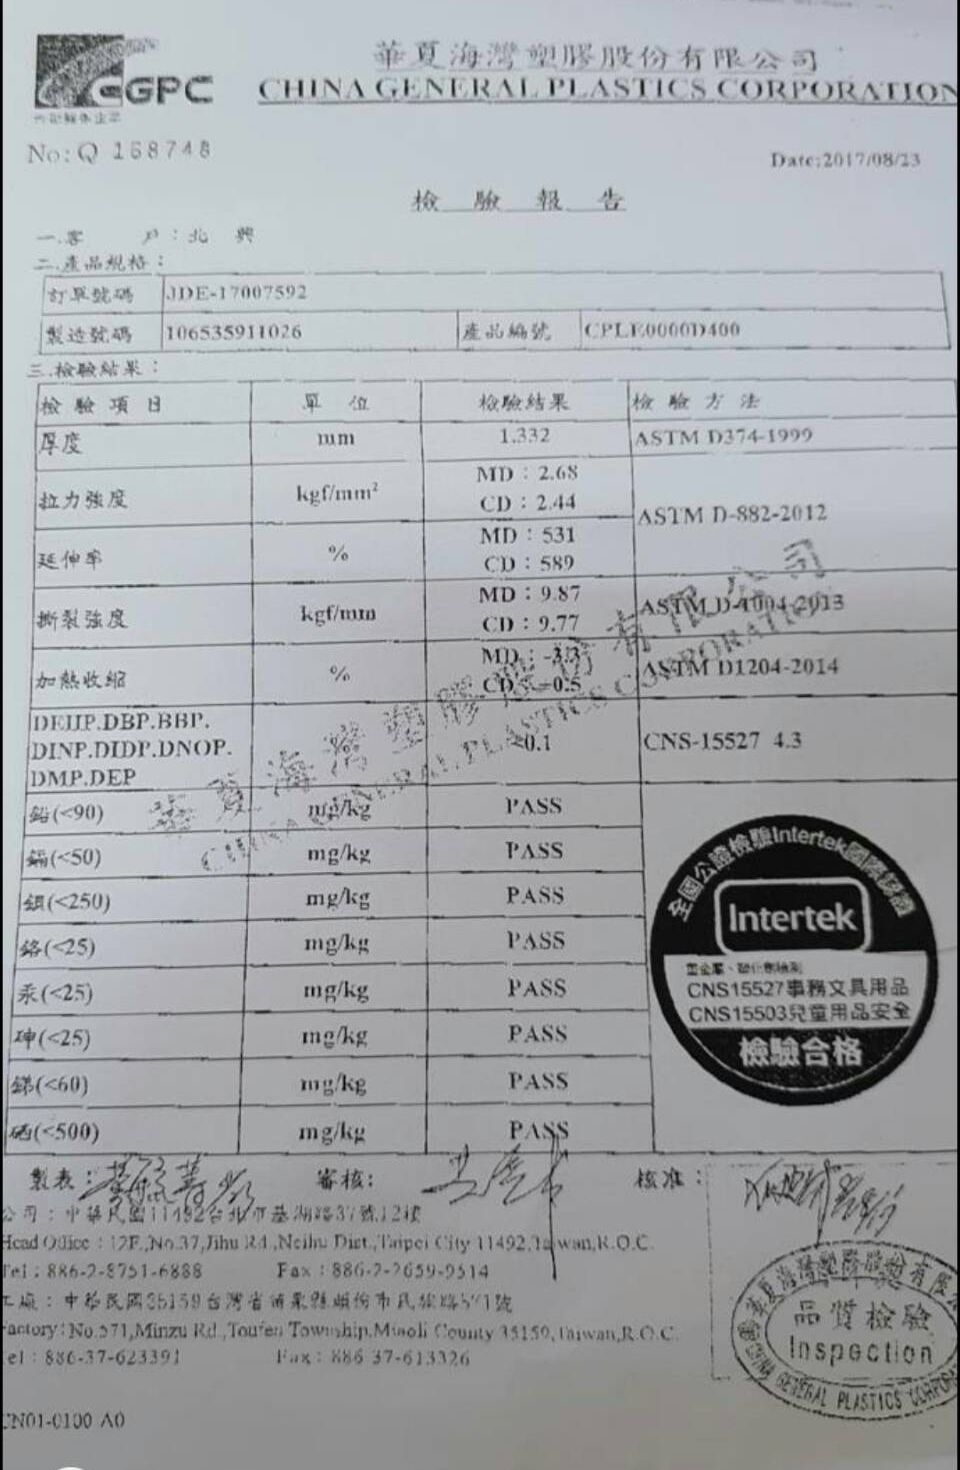 CGPC
華夏海灣塑膠股份有限公司
CHINA GENERAL PLASTICS CORPORATION
No: Q 168748
Date:2017/08/23
檢 驗 報 告
一.客 戶：北 興
二.產品規格：
訂單號碼 JDE-17007592
製造號碼 106535911026 產品編號 CPLE0000D400
三.檢驗結果：
檢 驗 項 目 單 位 檢驗結果 檢 驗 方 法
厚度 mm 1.332 ASTM D374-1999
拉力強度 kgf/mm² MD：2.68 CD：2.44 ASTM D-882-2012
延伸率 % MD：531 CD：589
撕裂強度 kgf/mm MD：9.87 CD：9.77 ASTM D-1004-2013
加熱收縮 % MD：-3.3 CD：-0.5 ASTM D1204-2014
DEHP.DBP.BBP.
DINP.DIDP.DNOP. <0.1 CNS-15527 4.3
DMP.DEP
華夏海灣塑膠股份有限公司
CHINA GENERAL PLASTICS CORPORATION
鉛(<90) mg/kg PASS
鎘(<50) mg/kg PASS
鋇(<250) mg/kg PASS
鉻(<25) mg/kg PASS
汞(<25) mg/kg PASS
砷(<25) mg/kg PASS
銻(<60) mg/kg PASS
硒(<500) mg/kg PASS
全國公證檢驗Intertek國際認證
Intertek
重金屬、塑化劑檢測
CNS15527事務文具用品
CNS15503兒童用品安全
檢驗合格
製表： 審核： 核准：
公司：中華民國11492台北市基湖路37號12樓
Head Office：12F.,No.37,Jihu Rd.,Neihu Dist.,Taipei City 11492,Taiwan,R.O.C.
Tel：886-2-8751-6888 Fax：886-2-2659-9514
工廠：中華民國35159台灣省苗栗縣頭份市民族路571號
Factory：No.571,Minzu Rd.,Toufen Township,Miaoli County 35159,Taiwan,R.O.C.
Tel：886-37-623391 Fax：886 37-613326
華夏海灣塑膠股份有限
品質檢驗
Inspection
CHINA GENERAL PLASTICS CORPORA
CN01-0100 A0